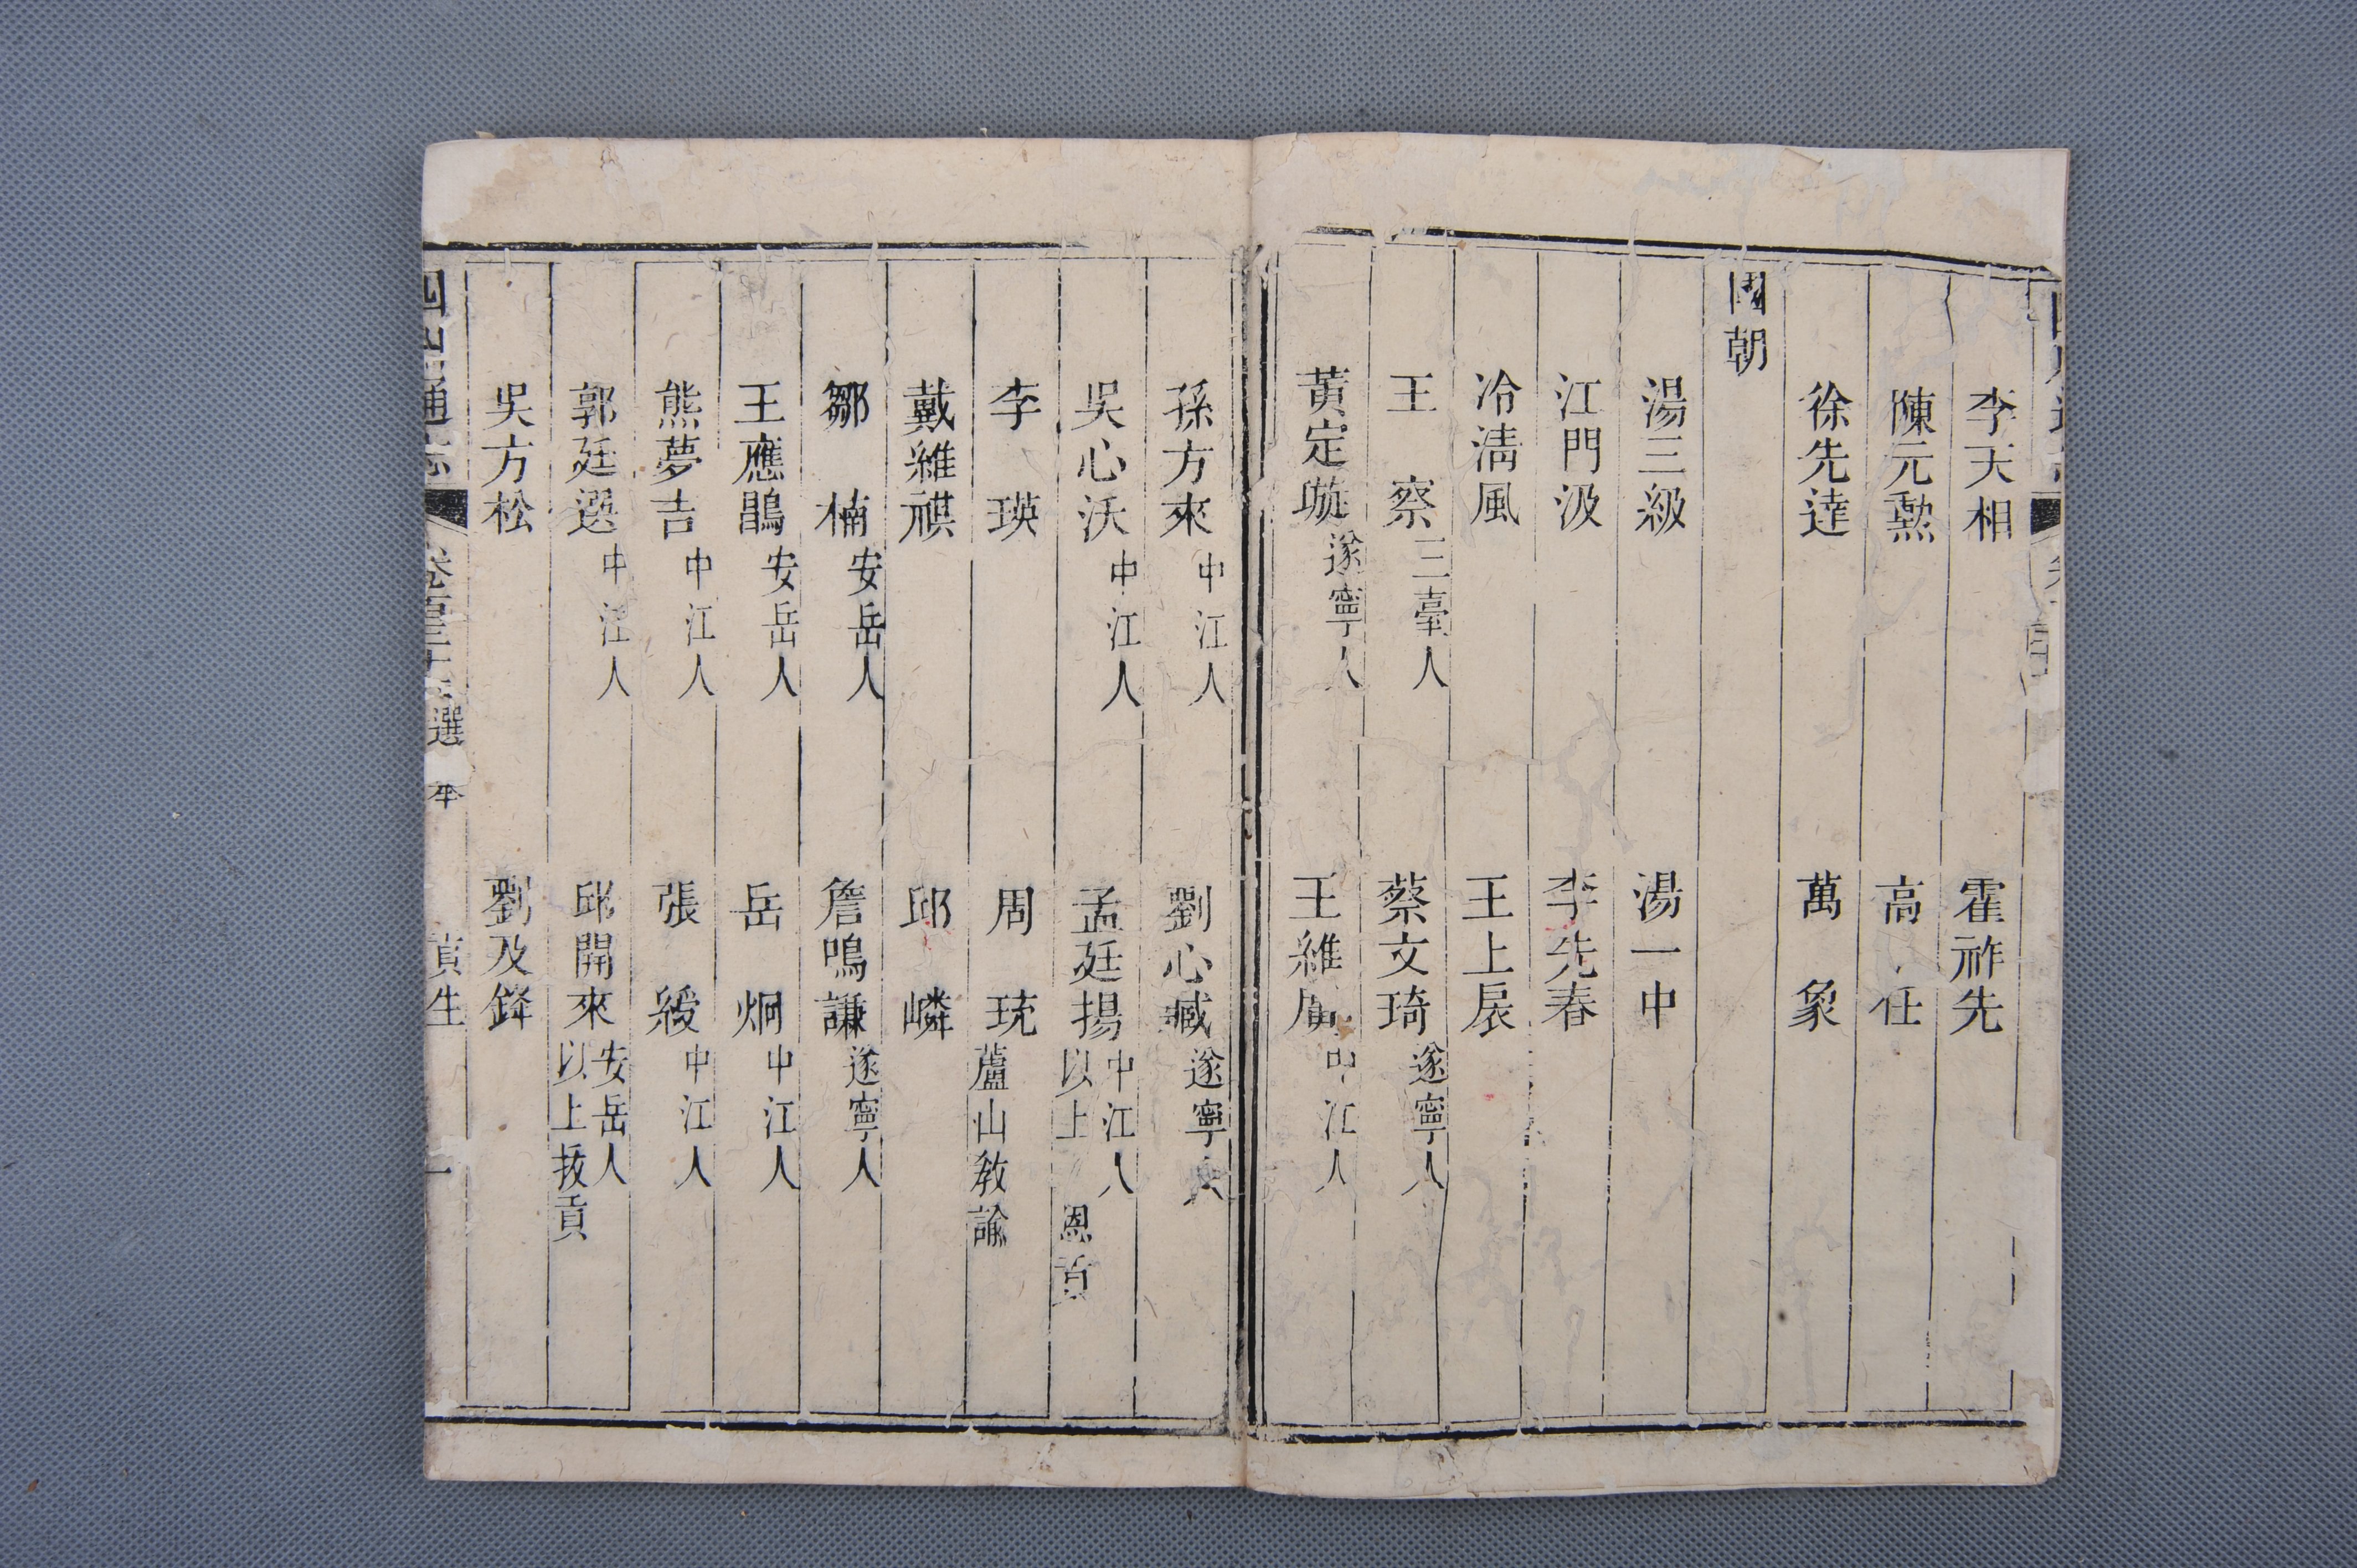 李天相 霍祚先
陳元勲 高任
徐先達 萬象
國朝
湯三級 湯一中
江門汲 李先春
冷清風 王上辰
王察三臺人 蔡文琦遂寧人
黃定璇遂寧人 王維 中江人
孫方來中江人 劉心臧遂寧人
吳心沃中江人 孟廷揚中江人以上恩貢
李瑛 周珫蘆山教諭
戴維祺 邱嶙
鄒楠安岳人 詹鳴謙遂寧人
王應鵾安岳人 岳炯中江人
熊夢吉中江人 張綬中江人
郭廷選中江人 邱開來安岳人以上拔貢
吳方松 劉及鋒
四川通志 選 貢生